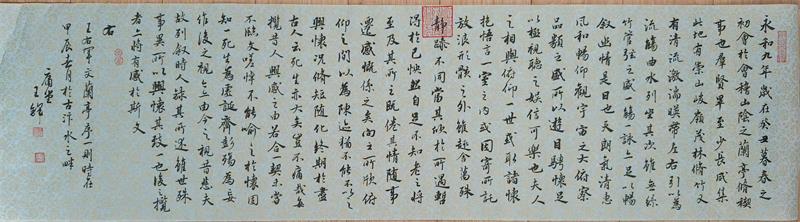 永和九年歲在癸丑暮春之
初會於會稽山陰之蘭亭脩禊
事也群賢畢至少長咸集
此地有崇山峻嶺茂林脩竹又
有清流激湍暎帶左右引以為
流觴曲水列坐其次雖無絲
竹管弦之盛一觴一詠亦足以暢
敘幽情是日也天朗氣清惠
風和暢仰觀宇宙之大俯察
品類之盛所以遊目騁懷足
以極視聽之娛信可樂也夫人
之相與俯仰一世或取諸懷
抱悟言一室之內或因寄所託
放浪形骸之外雖趣舍萬殊
靜躁不同當其欣於所遇暫
得於己快然自足不知老之將
至及其所之既倦其情隨事
遷感慨係之矣向之所欣俯
仰之間以為陳迹猶不能不以之
興懷況脩短隨化終期於盡
古人云死生亦大矣豈不痛哉每
攬昔人興感之由若合一契未嘗
不臨文嗟悼不能喻之於懷固
知一死生為虛誕齊彭殤為妄
作後之視今亦由今之視昔悲夫
故列敘時人錄其所述雖世殊
事異所以興懷其致一也後之攬
者亦將有感於斯文
右
王右軍文蘭亭序一則時在
甲辰春月於古汴水之畔